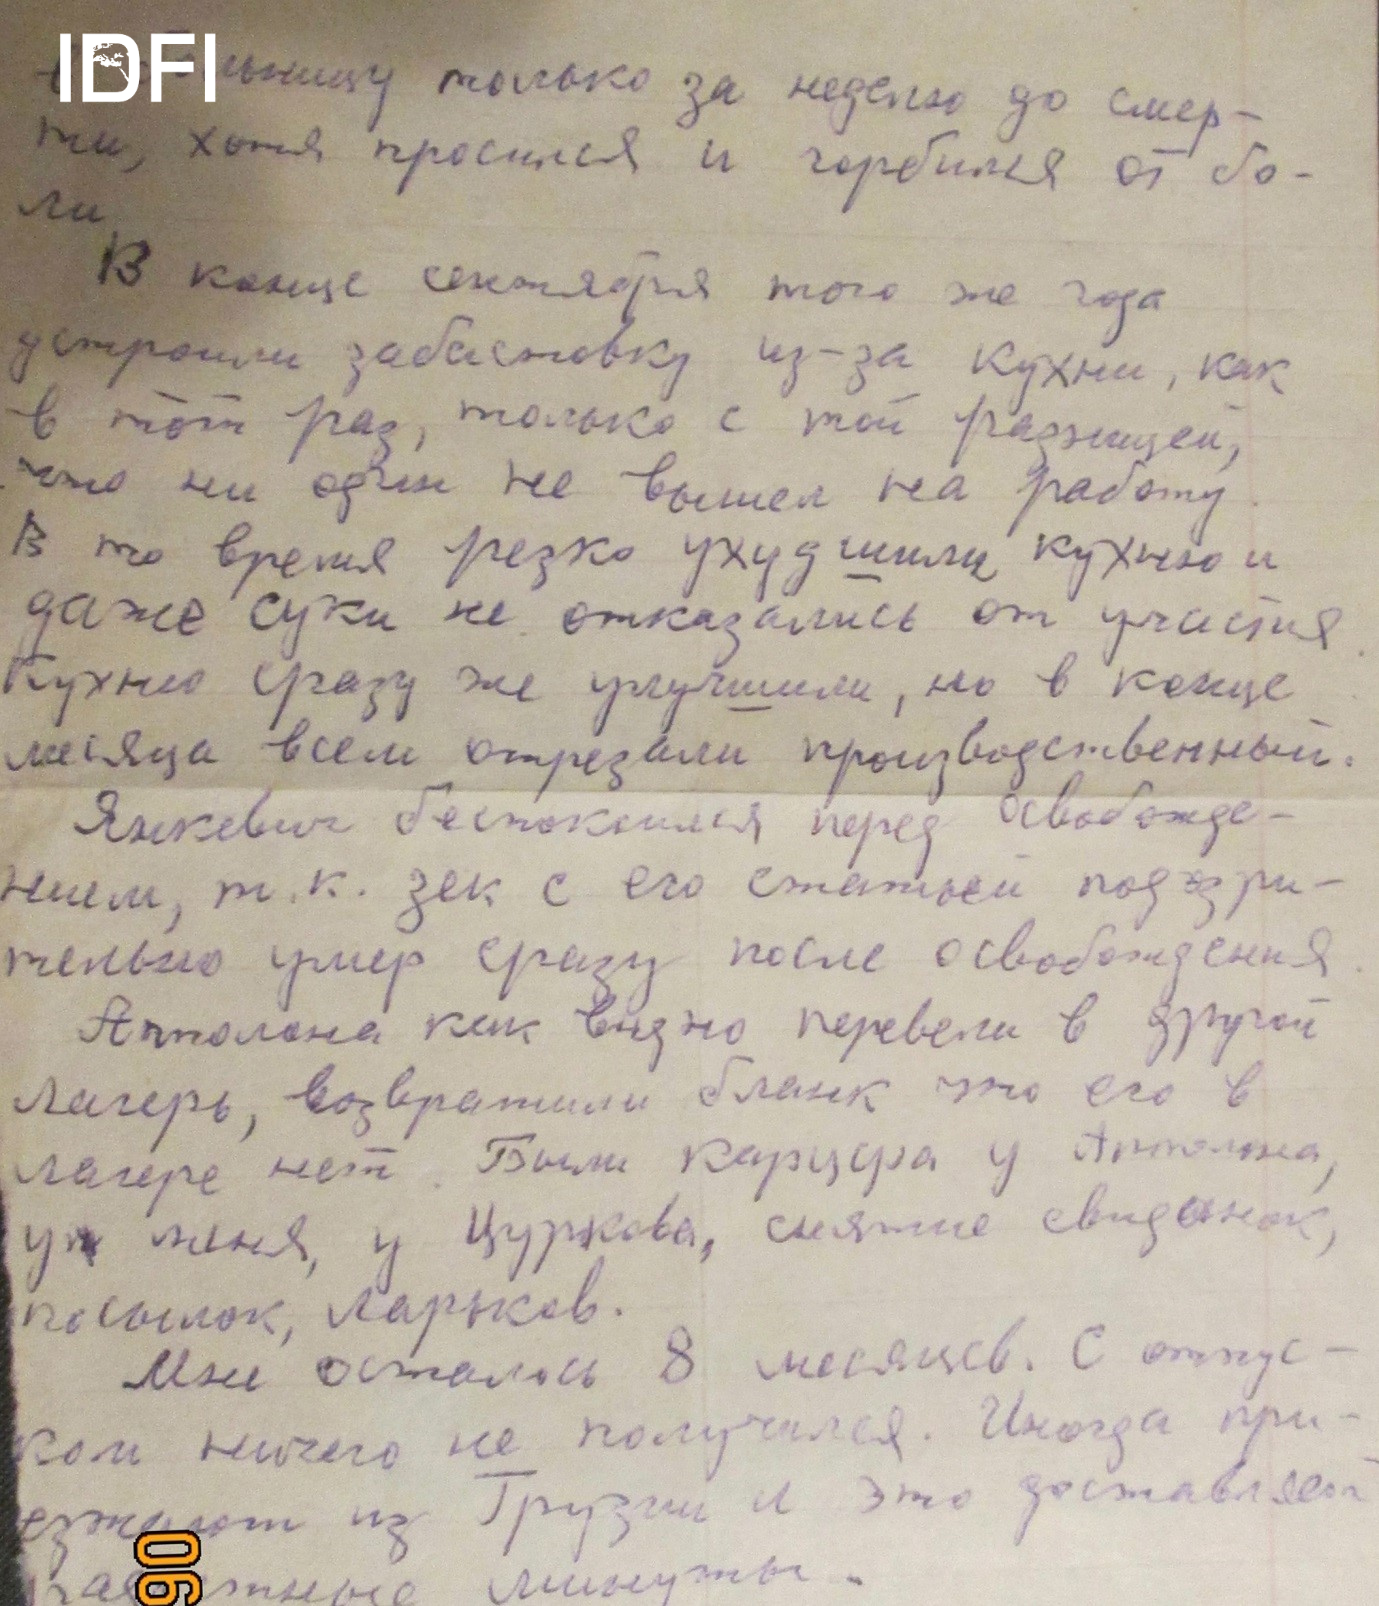 IDFI
только за неделю до смер-
ти, хотя просился и горбился от бо-
ли
В конце сентября того же года
устроили забастовку из-за кухни, как
в тот раз, только с той разницей,
что ни один не вышел на работу.
В то время резко ухудшили кухню и
даже суки не отказались от участия.
Кухню сразу же улучшили, но в конце
месяца всем отрезали производственный.
Янкевич беспокоился перед освобожде-
нием, т.к. зек с его статьей подозри-
тельно умер сразу после освобождения.
Апполона как видно перевели в другой
лагерь, возвратили бланк что его в
лагере нет. Были карцера у Апполона,
у меня, у Цуркова, снятие свиданок,
посылок, ларьков.
Мне осталось 8 месяцев. С отпус-
ком ничего не получился. Иногда при-
езжают из Грузии и это доставляет
минуты.
06